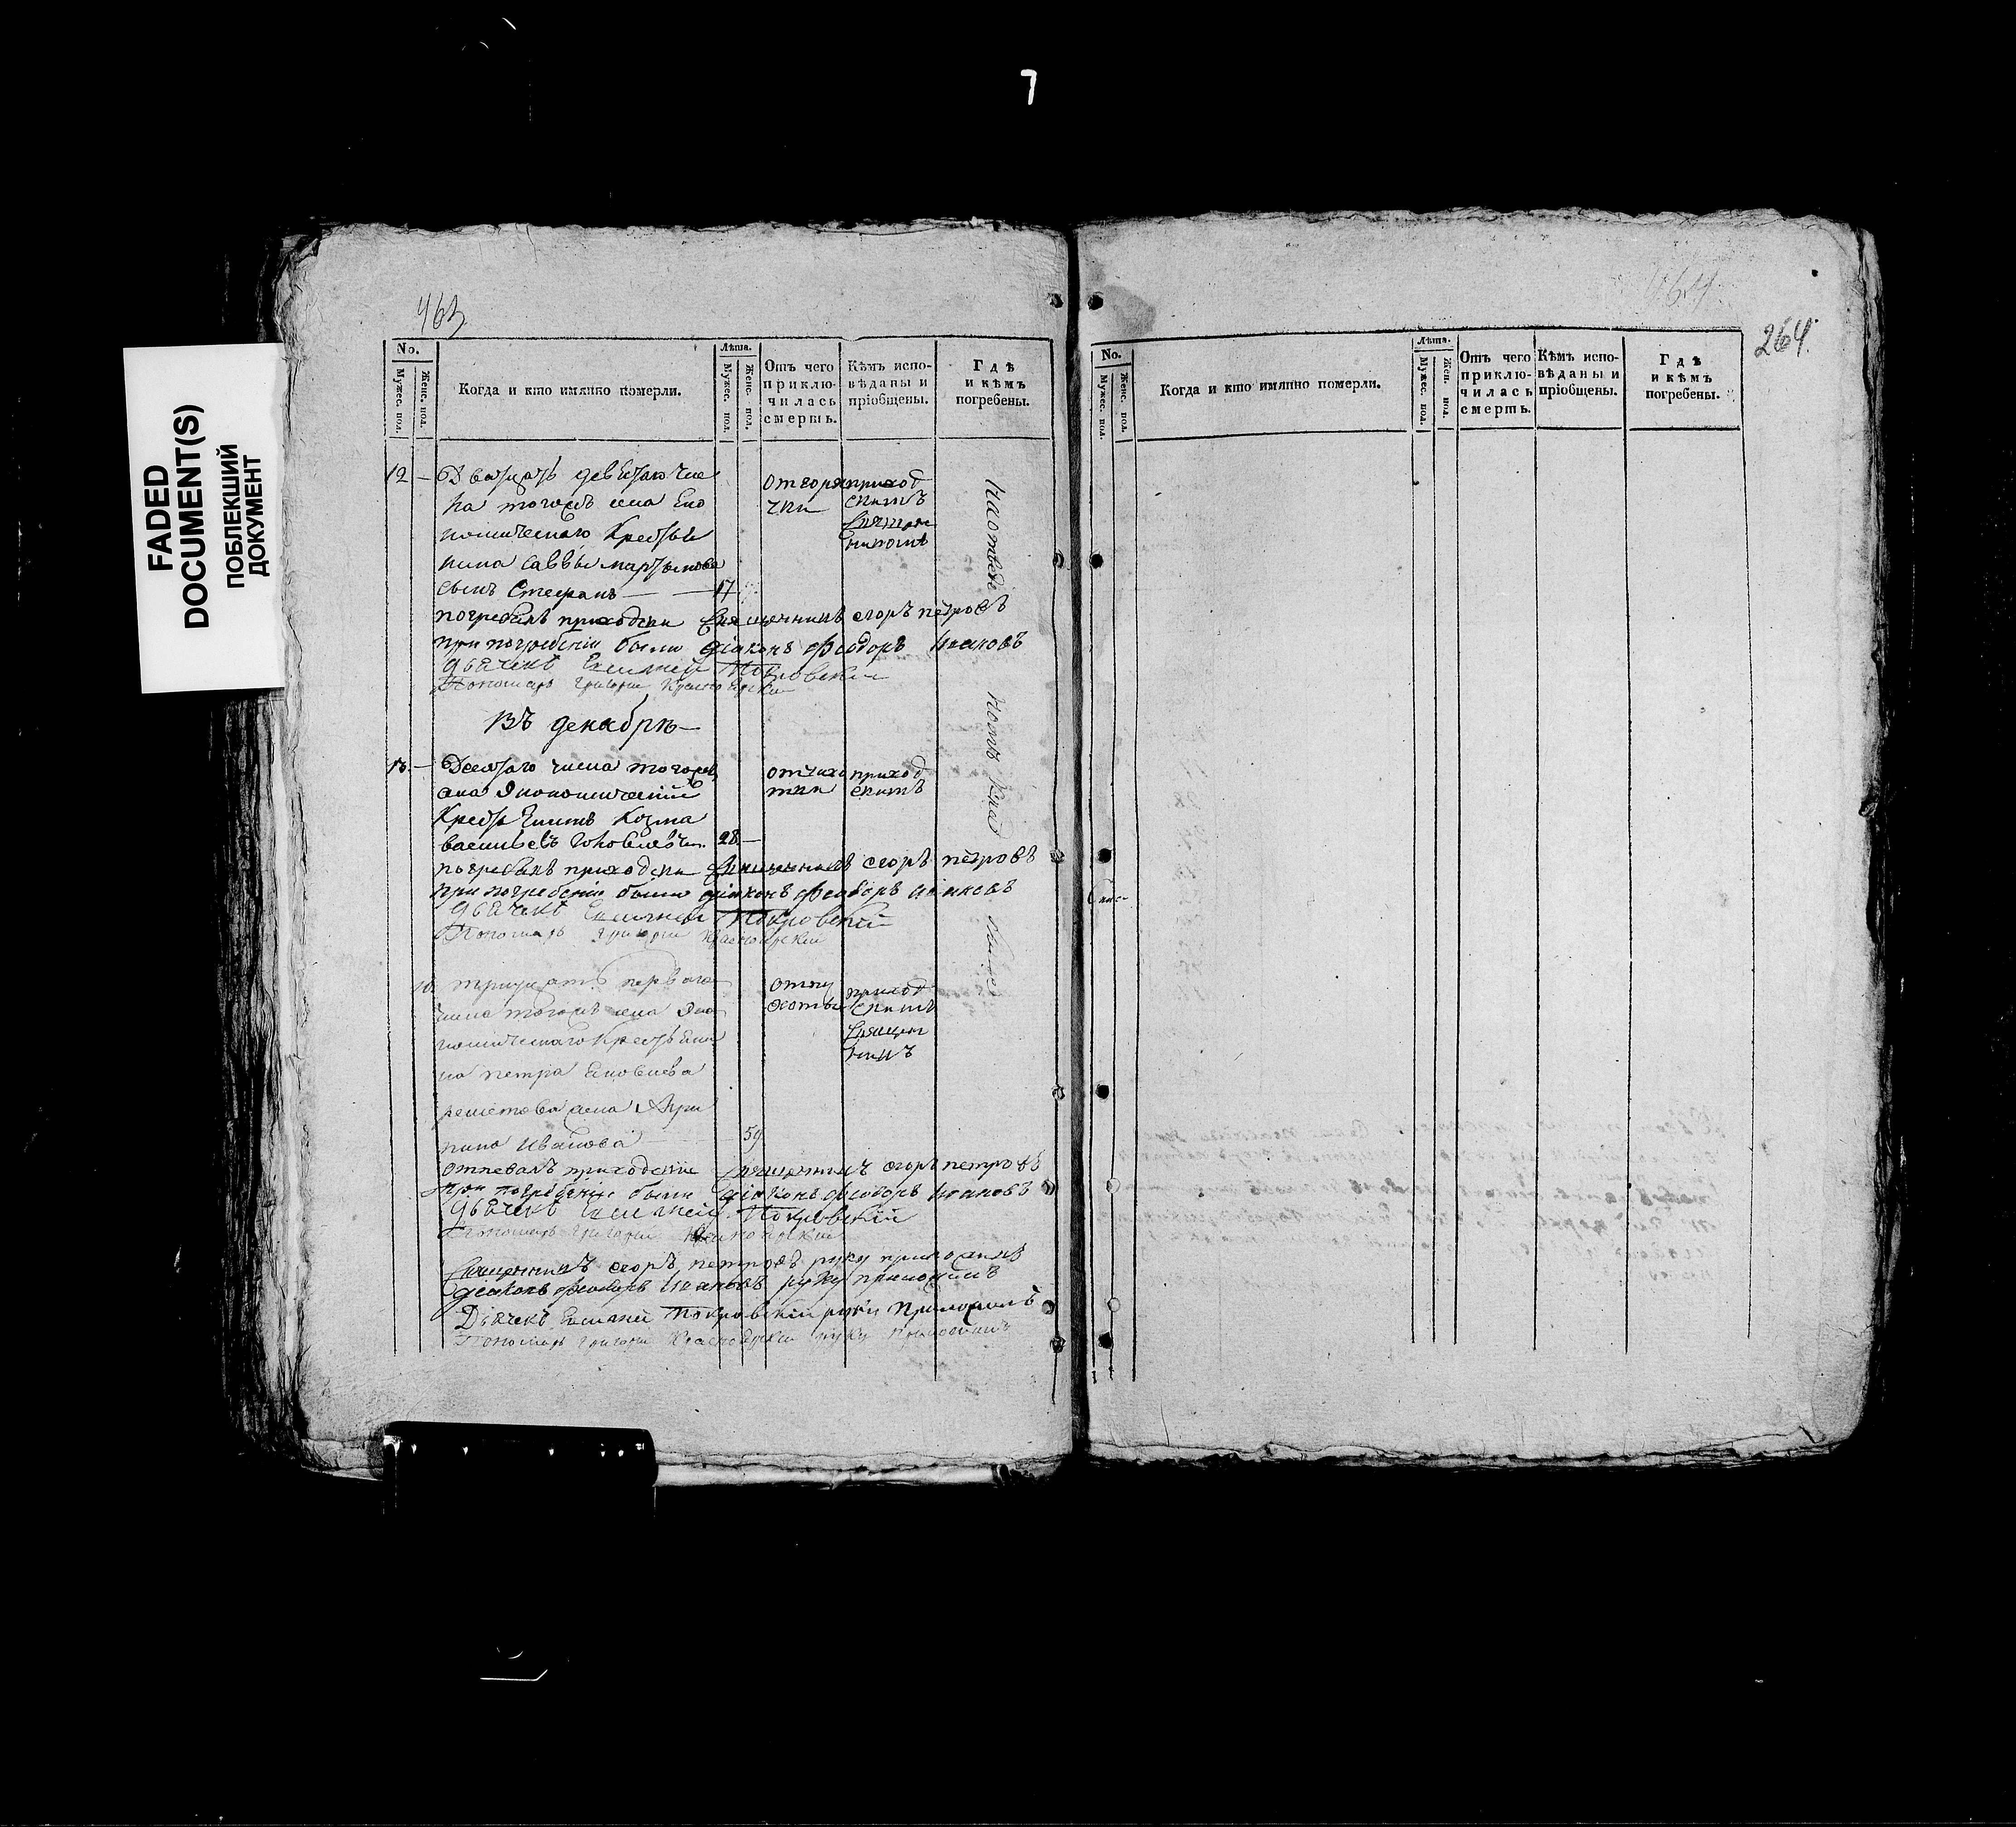 7
FADED
DOCUMENT(S)
ПОБЛЕКШИЙ
ДОКУМЕНТ
463
No.
Мужес. пол.
Женс. пол.
Когда и кто имянно померли.
Лѣта.
Мужес. пол.
Женс. пол.
Отъ чего
приклю-
чилась
смерть.
Кѣмъ испо-
вѣданы и
пріобщены.
Гдѣ
и кѣмъ
погребены.
12 — Дватцать девятаго чис
ла тогожъ села Еко
номическаго Крестья
нина Саввы мартынова
сынъ Стефанъ — 17
от горя
чки
приход
скимъ
Священ
никомъ
погребалъ приходски Священникъ егоръ петровъ
при погребеніи были діаконъ Феодоръ Іоановъ
дьячекъ Евгеній Покровскій
Пономарь григори Красноярски
Въ декабрѣ —
13. — Десятаго числа тогожъ
села Экономическій
Крестьянинъ Козма
васильевъ 28. —
от чахо
тки
приход
скимъ
погребалъ приходски Священникъ егоръ петровъ
при погребеніи были діаконъ Феодоръ Іоановъ
дьячекъ Покровскій
Пономарь григори Красноярскій
10. тритцать перваго
числа тогожъ села Эко
номическаго Крестьяни
на петра Яковлева
решетова жена Агри
пина Иванова 59.
приход
скимъ
Священ
никъ
отпевалъ приходскіе Священникъ егоръ петровъ
при погребеніи были діаконъ Феодоръ Іоановъ
дьячекъ Покровскій
Пономарь григори Красноярскій
Священникъ егоръ петровъ руку приложилъ
діаконъ Феодоръ Іоановъ руку приложилъ
Дьячекъ Покровскій руку приложилъ
Пономарь григори Красноярски руку приложилъ
264.
No.
Мужес. пол.
Женс. пол.
Когда и кто имянно померли.
Лѣта.
Мужес. пол.
Жен. пол.
Отъ чего
приклю-
чилась
смерть.
Кѣмъ испо-
вѣданы и
пріобщены.
Гдѣ
и кѣмъ
погребены.